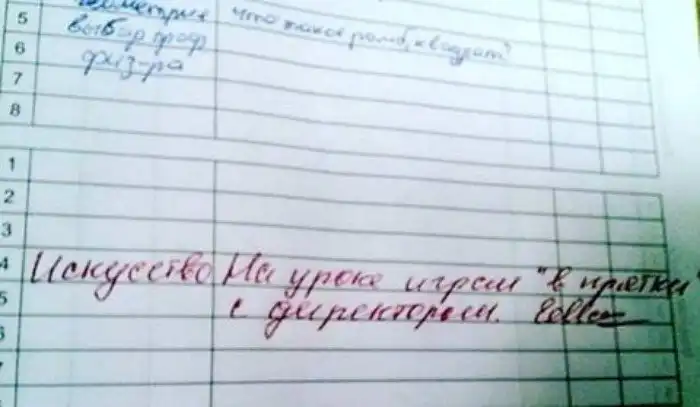 5 геометрия что такое ромб, квадрат?
6 выбор проф
7 физ-ра
8
1
2
3
4 Искусство На уроке играли "в прятки"
5 с директором.
6